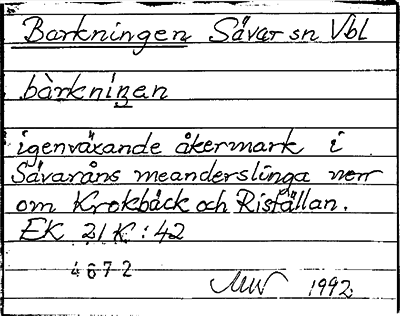 Barkningen Sävar sn Vbl
bàrkniṉen
igenväxande åkermark i
Sävaråns meanderslinga nerr
om Krokbäck och Riställan.
EK 21 K : 42
4672
MW 1992